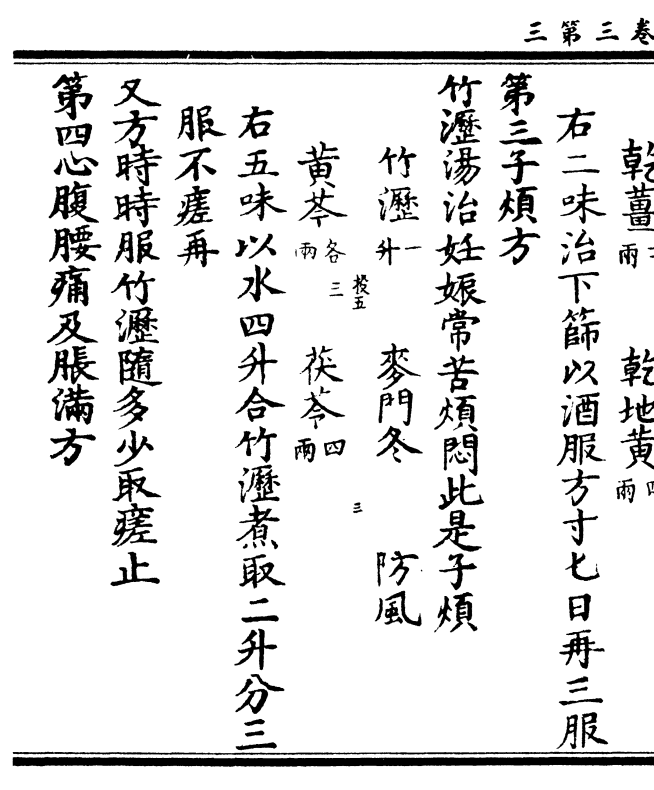 卷三第三
乾薑兩 乾地黄兩
右二味治下篩以酒服方寸匕日再三服
第三子煩方
竹瀝湯治妊娠常苦煩悶此是子煩
竹瀝一升 麥門冬 防風
投五 三
黄芩各三兩 茯苓四兩
右五味以水四升合竹瀝煮取二升分三
服不瘥再
又方時時服竹瀝隨多少取瘥止
第四心腹腰痛及脹滿方